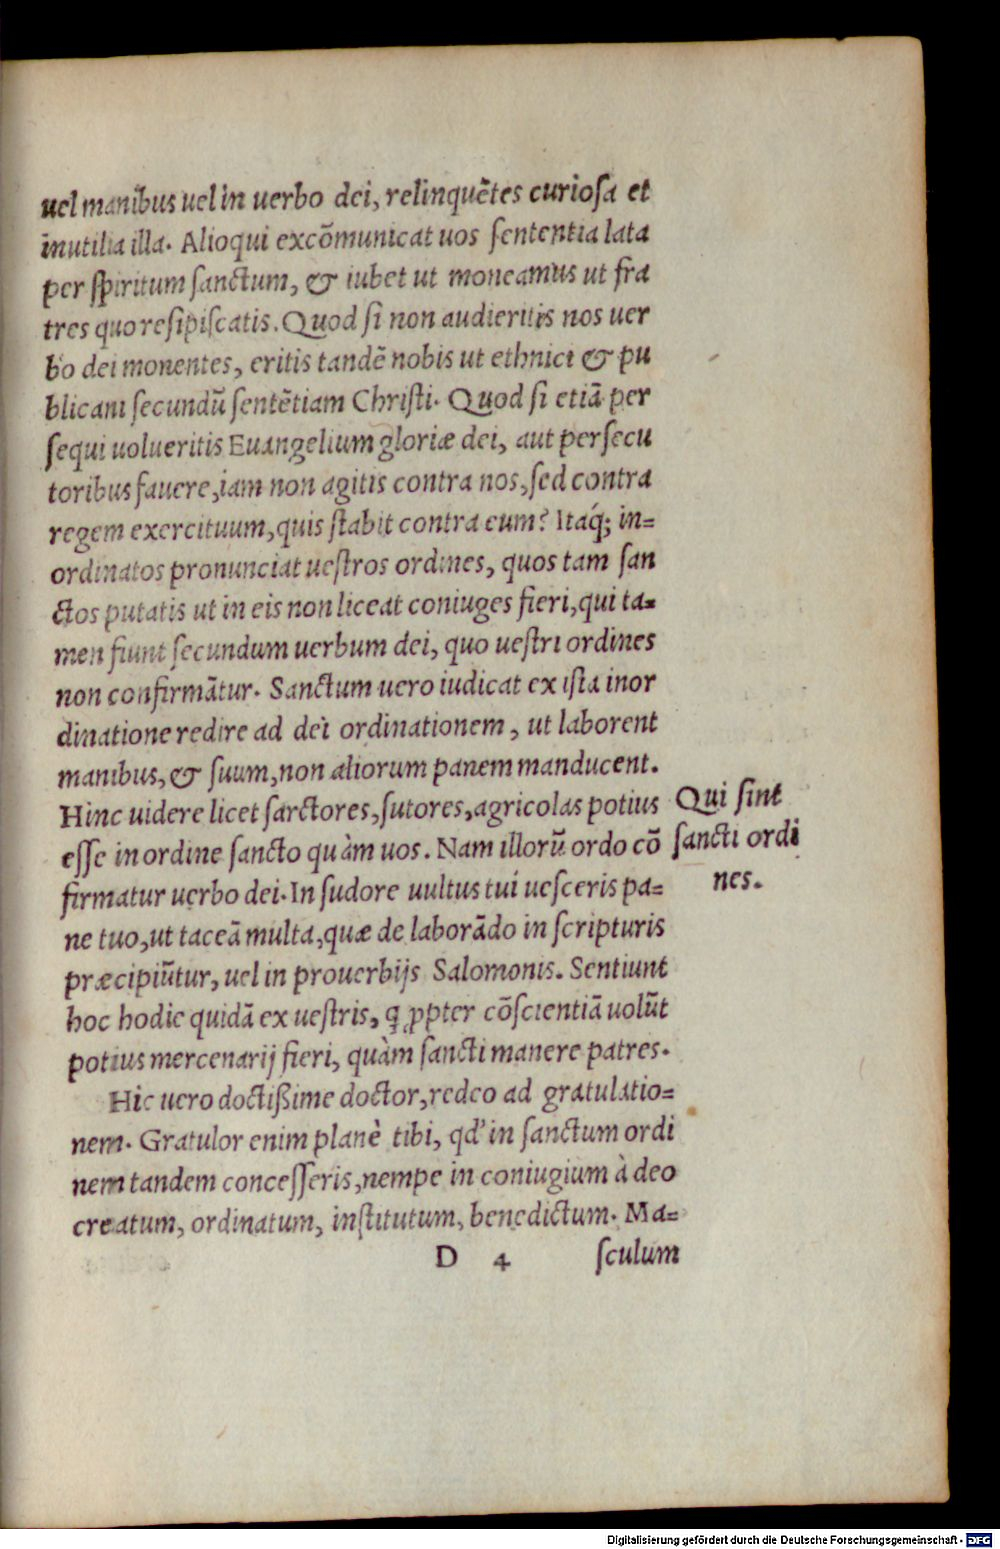 uel manibus uel in uerbo dei, relinquētes curiosa et
inutilia illa. Alioqui excōmunicat uos sententia lata
per spiritum sanctum, & iubet ut moneamus ut fra
tres quo resipiscatis. Quod si non audieritis nos uer
bo dei monentes, eritis tandē nobis ut ethnici & pu
blicani secundū sentētiam Christi. Quod si etiā per
sequi uolueritis Euangelium gloriæ dei, aut persecu
toribus fauere, iam non agitis contra nos, sed contra
regem exercituum, quis stabit contra eum? Itaq́; in=
ordinatos pronunciat uestros ordines, quos tam san
ctos putatis ut in eis non liceat coniuges fieri, qui ta=
men fiunt secundum uerbum dei, quo uestri ordines
non confirmātur. Sanctum uero iudicat ex ista inor
dinatione redire ad dei ordinationem, ut laborent
manibus, & suum, non aliorum panem manducent.
Hinc uidere licet sarctores, sutores, agricolas potius
esse in ordine sancto quàm uos. Nam illorū ordo cō
firmatur uerbo dei. In sudore uultus tui uesceris pa=
ne tuo, ut taceā multa, quæ de laborādo in scripturis
præcipiūtur, uel in prouerbijs Salomonis. Sentiunt
hoc hodie quidā ex uestris, q̃ ꝓpter cōscientiā uolūt
potius mercenarij fieri, quàm sancti manere patres.
Hic uero doctißime doctor, redeo ad gratulatio=
nem. Gratulor enim planè tibi, qd' in sanctum ordi
nem tandem concesseris, nempe in coniugium à deo
creatum, ordinatum, institutum, benedictum. Ma=
D 4 sculum
Qui sint
sancti ordi
nes.
Digitalisierung gefördert durch die Deutsche Forschungsgemeinschaft - DFG